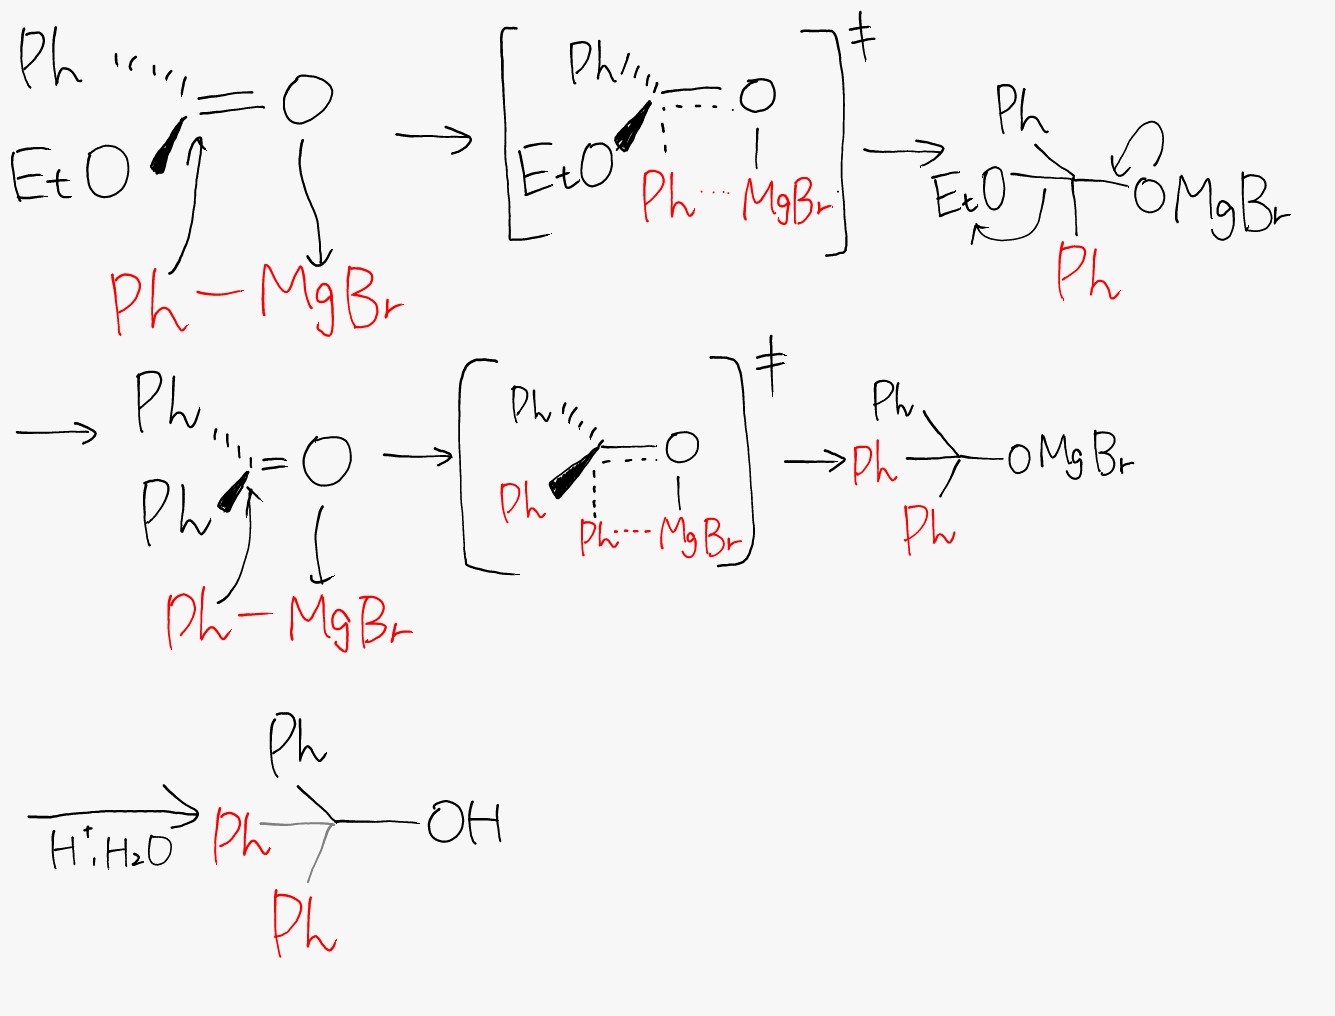 Ph
EtO
O
Ph—MgBr
Ph
EtO
O
Ph···MgBr
‡
Ph
EtO
OMgBr
Ph
Ph
Ph
=O
Ph—MgBr
Ph
Ph
O
Ph····MgBr
‡
Ph
Ph
OMgBr
Ph
H⁺, H₂O
Ph
Ph
OH
Ph